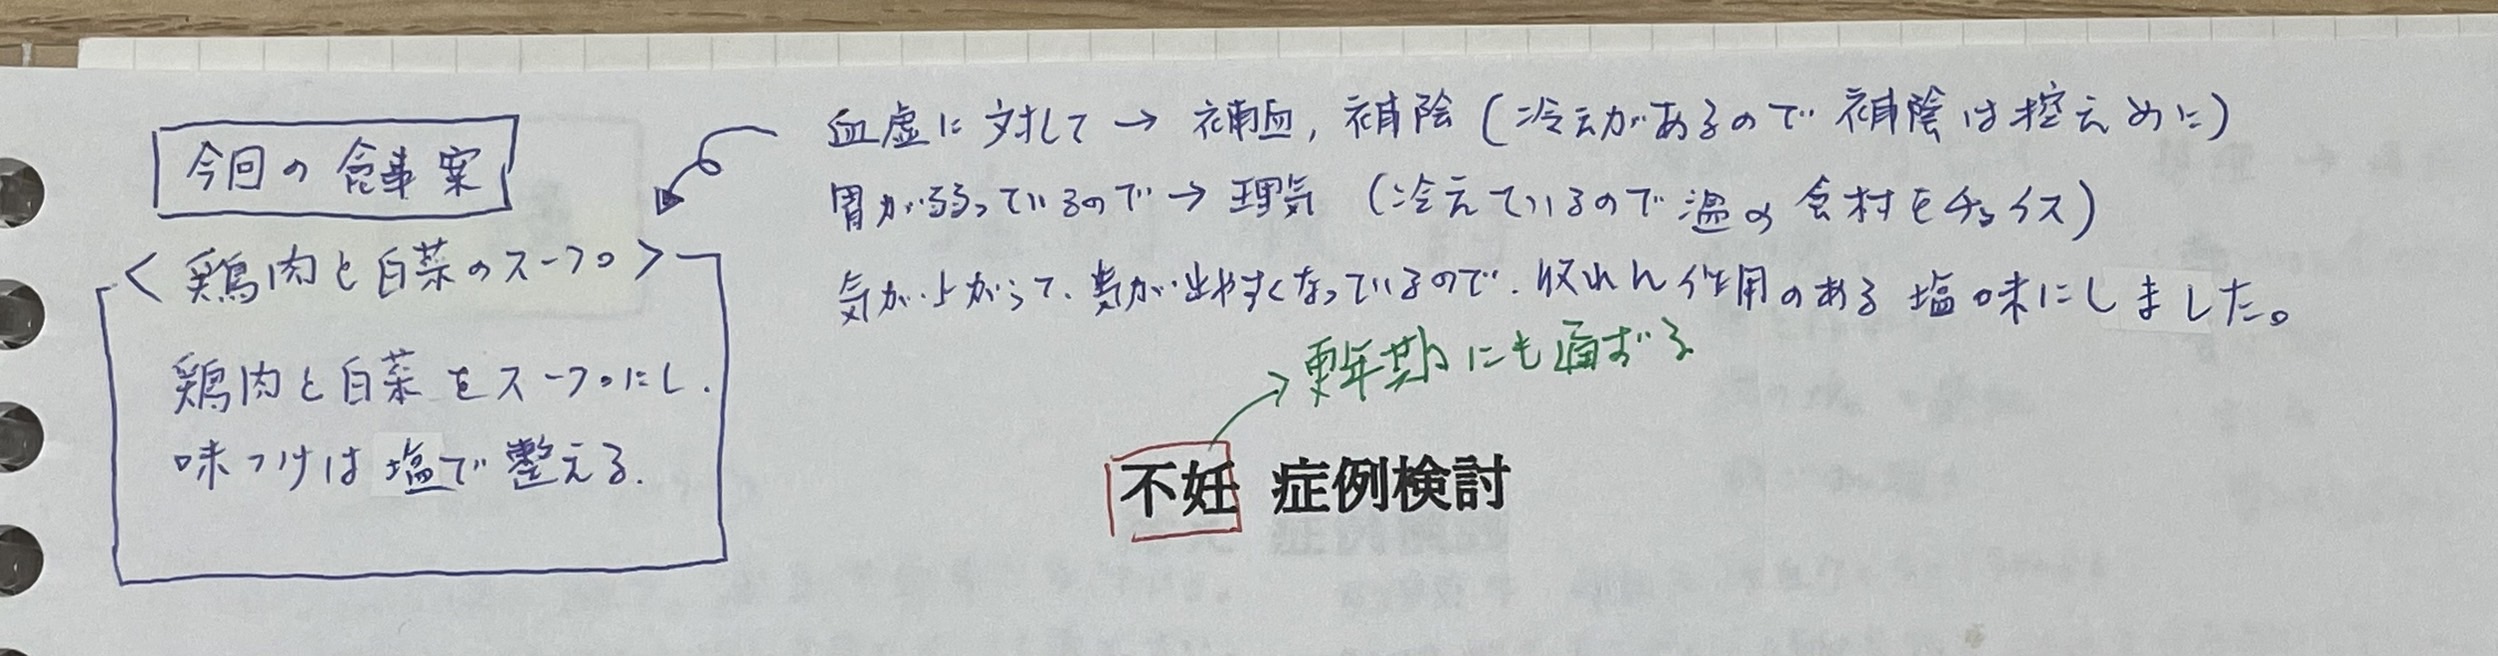 今回の食事案
<鶏肉と白菜のスープ>
鶏肉と白菜をスープにし.
味つけは塩で整える.
血虚に対して→補血, 補陰(冷えがあるので補陰は控えめに)
胃が弱っているので→理気 (冷えているので温の食材をチョイス)
気が上がって、熱が出やすくなっているので、収れん作用のある塩味にしました。
更年期にも通ずる
不妊 症例検討